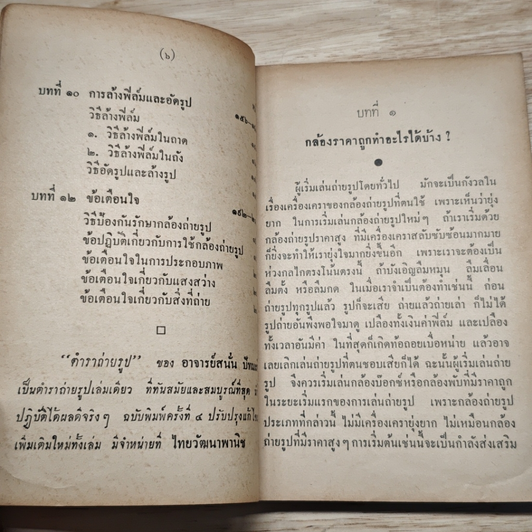 (๖)
บทที่ ๑๐ การล้างฟิล์มและอัดรูป
วิธีล้างฟิล์ม
๑. วิธีล้างฟิล์มในถาด
๒. วิธีล้างฟิล์มในถัง
วิธีอัดรูปและล้างรูป
บทที่ ๑๒ ข้อเตือนใจ
วิธีป้องกันรักษากล้องถ่ายรูป
ข้อปฏิบัติเกี่ยวกับการใช้กล้องถ่ายรูป
ข้อเตือนใจในการประกอบภาพ
ข้อเตือนใจเกี่ยวกับแสงสว่าง
ข้อเตือนใจเกี่ยวกับสิ่งที่ถ่าย
“ตำราถ่ายรูป” ของ อาจารย์สนั่น
เป็นตำราถ่ายรูปเล่มเดียว ที่ทันสมัยและสมบูรณ์ที่สุด
ปฏิบัติได้ผลดีจริงๆ ฉบับพิมพ์ครั้งที่ ๔ ปรับปรุงแก้ไข
เพิ่มเติมใหม่ทั้งเล่ม มีจำหน่ายที่ ไทยวัฒนาพานิช
บทที่ ๑
กล้องราคาถูกทำอะไรได้บ้าง ?
ผู้เริ่มเล่นถ่ายรูปโดยทั่วไป มักจะเป็นกังวลใน
เรื่องเครื่องคราของกล้องถ่ายรูปที่ตนใช้ เพราะเห็นว่ายุ่ง
ยาก ในการเริ่มเล่นกล้องถ่ายรูปใหม่ๆ ถ้าเราเริ่มด้วย
กล้องถ่ายรูปราคาสูง ที่มีเครื่องคราสลับซับซ้อนมากมาย
ก็ยิ่งจะทำให้เรายุ่งใจมากยิ่งขึ้นอีก เพราะเราจะต้องเป็น
ห่วงกลไกตรงโน้นตรงนี้ ถ้าบังเอิญลืมหมุน ลืมเลื่อน
ลืมตั้ง หรือลืมกด ในเมื่อเราจำเป็นต้องทำเช่นนี้ ก่อน
ถ่ายรูปทุกรูปแล้ว รูปก็จะเสีย ถ่ายแล้วถ่ายเล่า ก็ไม่ได้
รูปถ่ายอันพึงพอใจมาดู เปลืองทั้งเงินค่าฟิล์ม และเปลือง
ทั้งเวลาอันมีค่า ในที่สุดก็เกิดท้อถอยเบื่อหน่าย แล้วอาจ
เลยเลิกเล่นถ่ายรูปที่ตนชอบเสียก็ได้ ฉะนั้นผู้เริ่มเล่นถ่าย
รูป จึงควรเริ่มเล่นกล้องบ๊อกซ์หรือกล้องพับที่มีราคาถูก
ในระยะเริ่มแรกของการเล่นถ่ายรูป เพราะกล้องถ่ายรูป
ประเภทที่กล่าวนี้ ไม่มีเครื่องครายุ่งยาก ไม่เหมือนกล้อง
ถ่ายรูปที่มีราคาสูงๆ การเริ่มต้นเช่นนี้จะเป็นกำลังส่งเสริม